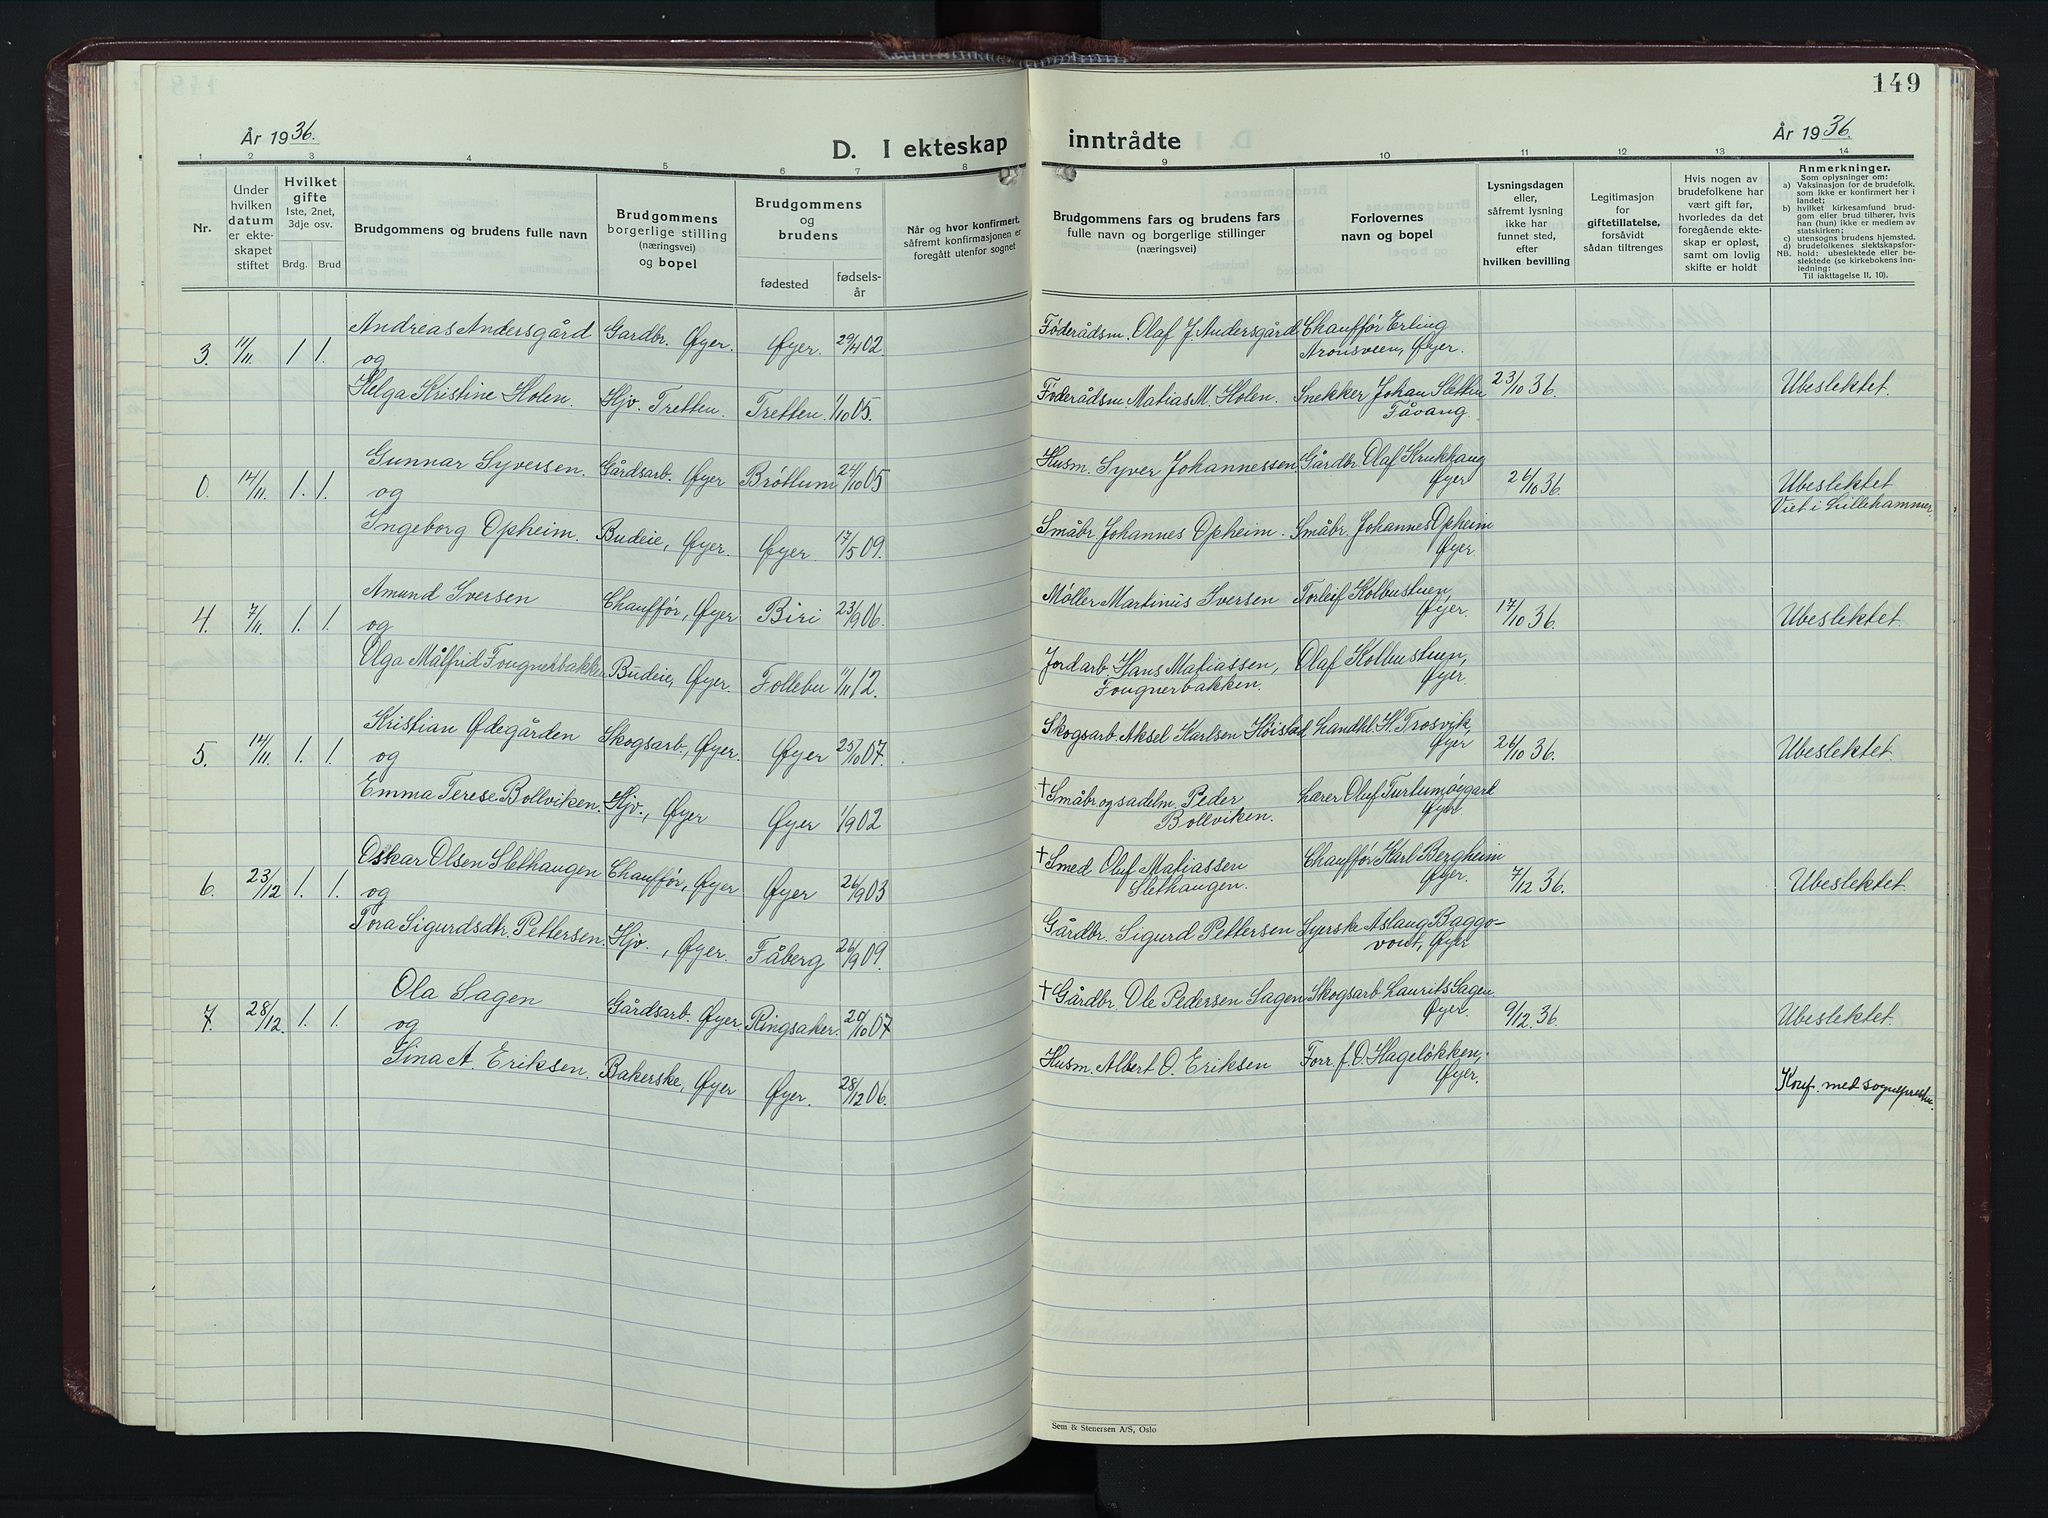 149
År 1936.
D. I ekteskap inntrådte
År 1936.
1 2 3 4 5 6 7 8 9 10 11 12 13 14
Nr.
Under hvilken datum er ekteskapet stiftet
Hvilket gifte
1ste, 2net, 3dje osv.
Brdg. Brud
Brudgommens og brudens fulle navn
Brudgommens borgerlige stilling (næringsvei) og bopel
Brudgommens og brudens
fødested
fødselsår
Når og hvor konfirmert, såfremt konfirmasjonen er foregått utenfor sognet
Brudgommens fars og brudens fars fulle navn og borgerlige stillinger (næringsvei)
Forlovernes navn og bopel
Lysningsdagen eller, såfremt lysning ikke har funnet sted, efter hvilken bevilling
Legitimasjon for giftetillatelse, forsåvidt sådan tiltrenges
Hvis nogen av brudefolkene har vært gift før, hvorledes da det foregående ekteskap er opløst, samt om lovlig skifte er holdt
Anmerkninger.
Som oplysninger om:
a) Vaksinasjon for de brudefolk, som ikke er konfirmert her i landet;
b) hvilket kirkesamfund brudgom eller brud tilhører, hvis han (hun) ikke er medlem av statskirken;
c) utensogns brudens hjemsted.
d) brudefolkenes slektskapsforhold: ubeslektede eller beslektede (se kirkebokens innledning;
NB. Til iakttagelse II, 10).
3. 11/11. 1. 1. Andreas Andersgård Gardbr. Øyer. Øyer. 29/4 02. Føderådsm. Olaf J. Andersgård Chauffør Erling Aronsveen, Øyer.
og
Helga Kristine Holen. Hjv. Tretten. Tretten. 1/10 05. Føderådsm. Matias M. Holen. Snekker Johan Sletten Fåvang. 23/10 36. Ubeslektet.
0. 14/11. 1. 1. Gunnar Syversen. Gårdsarb. Øyer Brøttum 24/10 05 Husm. Syver Johannessen Gårdbr. Olaf Krukhaug Øyer 26/10 36. Ubeslektet Viet i Lillehammer.
og
Ingeborg Opheim. Budeie, Øyer. Øyer. 17/5 09. Småbr. Johannes Opheim. Småbr. Johannes Opheim Øyer.
4. 7/11. 1. 1. Amund Iversen Chauffør, Øyer Biri 23/9 06. Møller Martinus Iversen Torleif Kolbustuen, Øyer. 17/10 36. Ubeslektet.
og
Olga Målfrid Fougnerbakken Budeie, Øyer. Follebu 1/11 12. Jordarb. Hans Matiassen, Fougnerbakken. Olaf Kolbustuen, Øyer.
5. 14/11. 1. 1. Kristian Ødegården Skogsarb., Øyer. Øyer 25/10 07. Skogsarb. Aksel Karlsen Høistad Landhl. H. Trosvik, Øyer 26/10 36. Ubeslektet.
og
Emma Terese Bollviken. Hjv., Øyer Øyer 1/9 02 † Småbr og sadelm. Peder Bollviken. Lærer Oluf Turtumøygard Øyer.
6. 23/12 1. 1. Oskar Olsen Slethaugen Chauffør, Øyer Øyer 26/9 03 † Smed Oluf Matiassen Slethaugen. Chauffør Karl Bergheim Øyer. 7/12 36. Ubeslektet.
og
Tora Sigurdsdtr. Pettersen. Hjv., Øyer. Fåberg 26/9 09. Gårdbr. Sigurd Pettersen Syerske Aslaug Baggovout, Øyer
7. 28/12. 1. 1. Ola Sagen Gårdsarb. Øyer. Ringsaker. 20/10 07 † Gårdbr. Ole Pedersen Sagen Skogsarb Laurits Sagen Øyer. 9/12. 36. Ubeslektet.
og
Sina A. Eriksen. Bakerske, Øyer Øyer. 28/12 06. Husm. Albert O. Eriksen Forr. f. O. Hageløkken, Øyer. Konf. med sogneprestn.
Sem & Stenersen A/S, Oslo